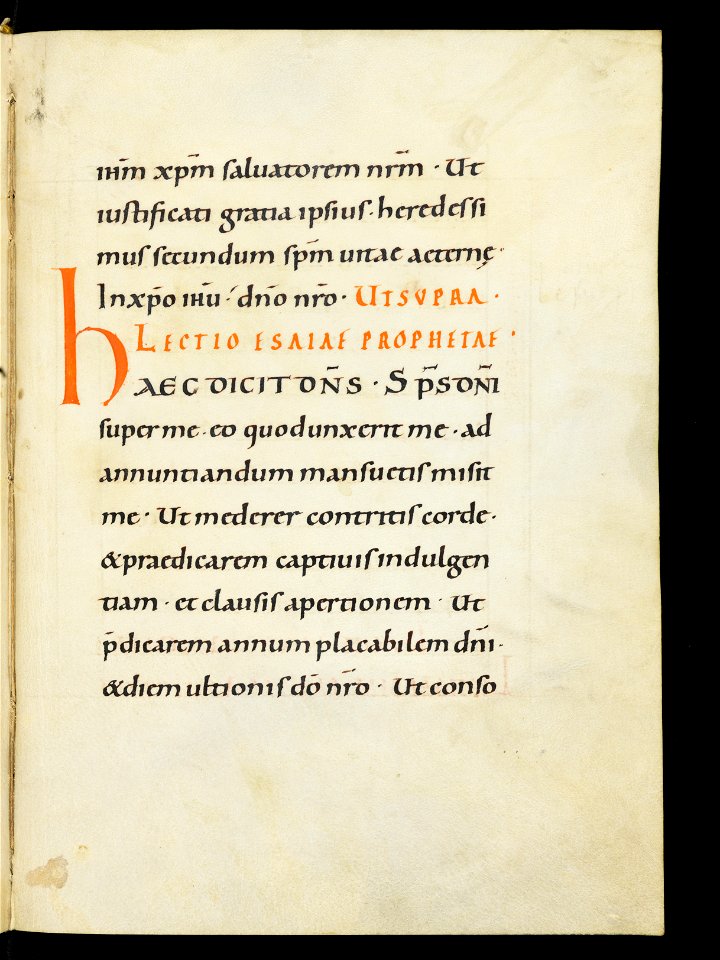 ihm̅ xp̅m saluatorem nr̅m · Ut
iustificati gratia ipsius · heredes si
mus secundum sp̅m uitae aeternę ·
In xp̅o ihu̅ · dn̅o nr̅o · UT SUPRA ·
LECTIO ESAIAE PROPHETAE ·
HAEC DICIT DN̅S · Sp̅s dn̅i
super me · eo quod unxerit me · ad
annuntiandum mansuetis misit
me · Ut mederer contritis corde ·
& praedicarem captiuis indulgen
tiam · et clausis apertionem · Ut
p̅dicarem annum placabilem dn̅i ·
& diem ultionis do̅ nr̅o · Ut conso